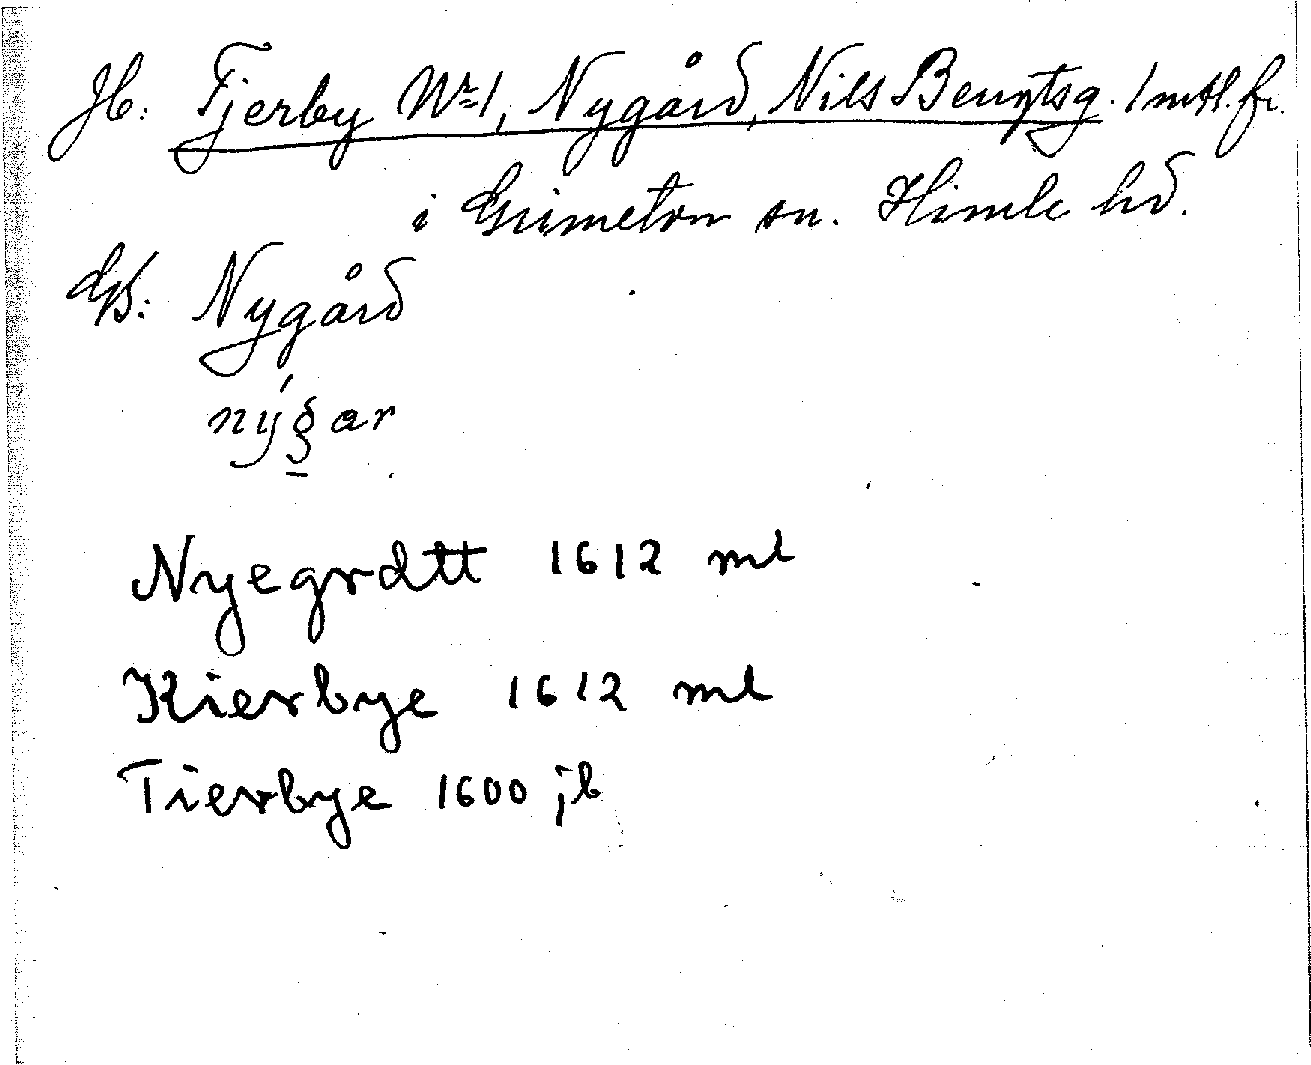 Jb: Tjerby Nr 1, Nygård, Nils Bengtsg. 1 mtl. fr.
i Grimeton sn. Himle hd.
GS: Nygård
nýgar
Nyegrdtt 1612 ml
Kierbye 1612 ml
Tierbye 1600 jb